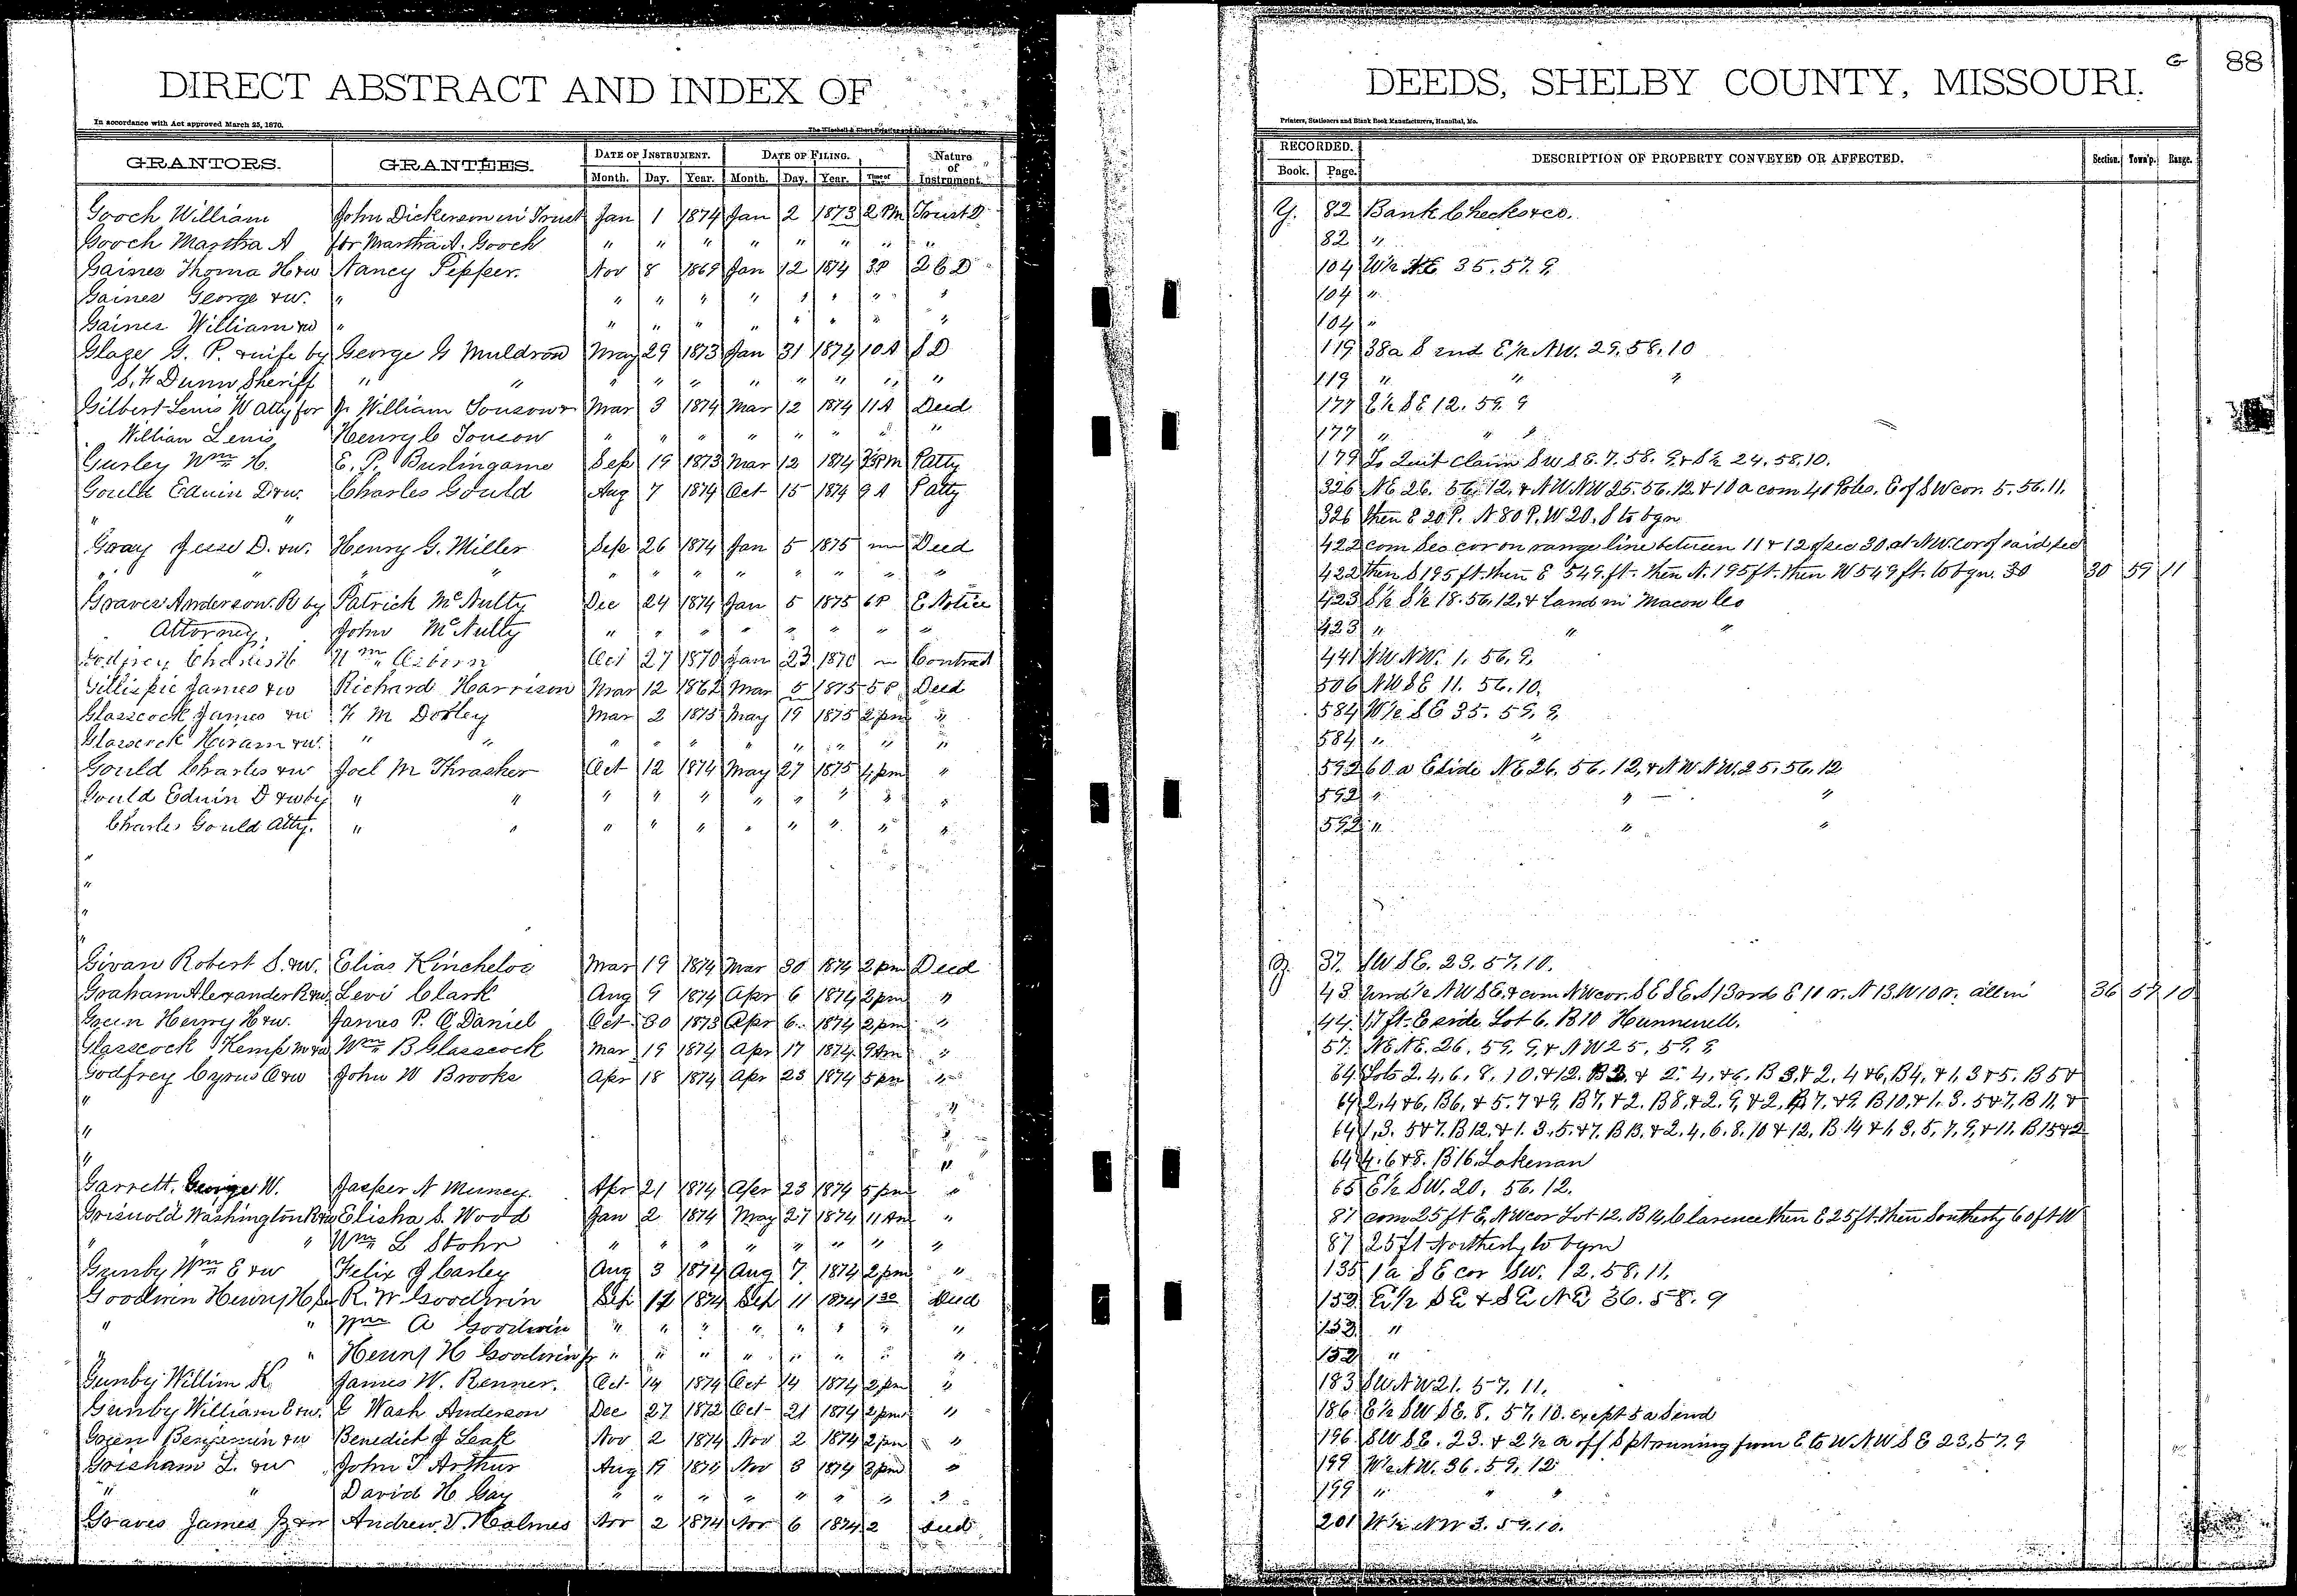 DIRECT ABSTRACT AND INDEX OF
In accordance with Act approved March 25, 1870.
GRANTORS. GRANTEES. DATE OF INSTRUMENT. DATE OF FILING. Nature of Instrument.
Month. Day. Year. Month. Day. Year. Time of Day
Gooch William John Dickerson in Trust Jan 1 1874 Jan 2 1873 2 PM Trust D
Gooch Martha A for Martha A. Gooch " " " " " " " "
Gaines Thoma H &w Nancy Pepper. Nov 8 1869 Jan 12 1874 3P 2 C D
Gaines George &w. " " " " " " " " "
Gaines William &w " " " " " " " " "
Glaze G. P. & wife by George G Muldrow May 29 1873 Jan 31 1874 10A S D
S. F Dunn Sheriff " " " " " " " " " "
Gilbert Lewis W atty for William Touson & Mar 3 1874 Mar 12 1874 11A Deed
William Lewis Henry C Touson " " " " " " " "
Gurley Wm H. E. P. Burlingame Sep 19 1873 Mar 12 1874 PM Patty
Gould Edwin D &w. Charles Gould Aug 7 1874 Oct 15 1874 9 A Patty
" "
Gray Jesse D. &w. Henry G. Miller Sep 26 1874 Jan 5 1875 Deed
" " " " " " " " " " "
Graves Anderson R by Patrick McNulty Dec 24 1874 Jan 5 1875 6P E Notice
Attorney. John McNulty " " " " " " " "
Godfrey Charles H Wm Oct 27 1870 Jan 23 1870 Contract
Gillispie James &w Richard Harrison Mar 12 1862 Mar 5 1875 5P Deed
Glasscock James &w F M Dooley Mar 2 1875 May 19 1875 2 pm "
Glasscock Hiram &w. " " " " " " " " " "
Gould Charles &w Joel M Thrasher Oct 12 1874 May 27 1875 4 pm "
Gould Edwin D &w by " " " " " " " " " "
Charles Gould Atty. " " " " " " " " " "
"
"
"
"
Givan Robert S. &w. Elias Kincheloe Mar 19 1874 Mar 30 1874 2 pm Deed
Graham Alexander R &w. Levi Clark Aug 9 1874 Apr 6 1874 2 pm "
Green Henry H &w. James P. O Daniel Oct 30 1873 Apr 6 1874 2 pm "
Glasscock Kemp M &w Wm B Glasscock Mar 19 1874 Apr 17 1874 9 Am "
Godfrey Cyrus O &w John W Brooks Apr 18 1874 Apr 23 1874 5 pm "
" "
" "
" "
Garrett. George W. Jasper N Apr 21 1874 Apr 23 1874 5 pm "
Griswold Washington R &w Elisha S. Wood Jan 2 1874 May 27 1874 11 Am "
" " Wm L Stohr " " " " " " " "
Gunby Wm E &w Felix J Carley Aug 3 1874 Aug 7 1874 2 pm "
Goodwin Henry H R. W Goodwin Sep 1874 Sep 11 1874 1 30 Deed
" " Wm A Goodwin " " " " " " " "
" " Henry H Goodwin jr " " " " " " " "
Gunby Willim K James W. Renner. Oct 14 1874 Oct 14 1874 2 pm "
Gunby William C &w. G Wash Anderson Dec 27 1872 Oct 21 1874 2 pm "
Benjamin &w Benedict J Leak Nov 2 1874 Nov 2 1874 2 pm "
Grisham L. &w John T Arthur Aug 19 1874 Nov 3 1874 3 pm "
" " David H Gay " " " " " " " "
Graves James &w Andrew V. Holmes Nov 2 1874 Nov 6 1874 2 Deed
DEEDS, SHELBY COUNTY, MISSOURI. G 88
Printers, Stationers and Blank Book Manufacturers, Hannibal, Mo.
RECORDED. DESCRIPTION OF PROPERTY CONVEYED OR AFFECTED. Section. Town'p. Range.
Book. Page.
82 Bank Checks &co.
82 "
104 W½ NE 35. 57. 9.
104 "
104 "
119 38a S end E½ NW. 29. 58. 10
119 " " "
177 E½ SE 12. 59. 9
177 " " "
179 To Quit Claim SW SE. 7. 58. 9. & S½ 24. 58. 10.
326 NE 26. 56. 12. & NW NW 25. 56. 12. & 10 a com 40 Poles. E of SW cor. 5. 56. 11.
326 then E 20 P. N 80 P. W 20. S to bgn
422 com Sec cor on range line between 11 & 12 of sec 30. at NW. cor of said sec
422 then S 195 ft. then E 549. ft. then N. 195 ft. then W 549 ft. to bgn. 30 30 59 11
423 S½ S½ 18. 56. 12. & Land in Macon Co
423 " " "
441 NW NW. 1. 56. 9.
506 NW SE 11. 56. 10.
584 W½ SE 35. 59. 9.
584 " "
592 60 a E side NE 26. 56. 12, & NW NW. 25. 56. 12
592 " " "
592 " " "
37. SW SE. 23. 57. 10.
43 Und ½ NW SE. & com NW cor. SE SE. S 13 rods E 10 r. N 13. W 10 r. all in 36 57 10
44. 17 ft. E side Lot 6. B 10 Hunnewell.
57. NE NE. 26. 59. 9. & NW 25. 59. 9
64 Lots 2. 4. 6. 8. 10. & 12. B 2. & 2. 4. & 6. B 3. & 2. 4 & 6. B 4. & 1. 3 & 5. B 5 &
64 2. 4 & 6. B 6. & 5. 7 & 9. B 7. & 2. B 8. & 2. 9. & 2. B 7. & 9. B 10. & 1. 3. 5 & 7. B 11. &
64 1. 3. 5 & 7. B 12. & 1. 3. 5. & 7. B 13. & 2. 4. 6. 8. 10 & 12. B 14 & 1. 3. 5. 7. 9. & 11. B 15 & 2
64 4. 6 & 8. B 16. Lakenan
65 E½ SW. 20. 56. 12.
87 com 25 ft E. NW cor Lot 12. B 14. Clarence then E 25 ft. then Southerly 60 ft W
87 25 ft Northerly to bgn
135 1 a SE cor SW. 12. 58. 11.
153 E½ SE & SE NE 36. 58. 9
153 "
153 "
183 SW NW 21. 57. 11.
186 E½ SW SE. 8. 57. 10. except 5 a S end
196 SW SE. 23. & 2½ a off S pt running from E to W NW SE 23. 57. 9
199 W½ NW. 36. 59. 12
199 " " "
201 W½ NW 3. 59. 10.